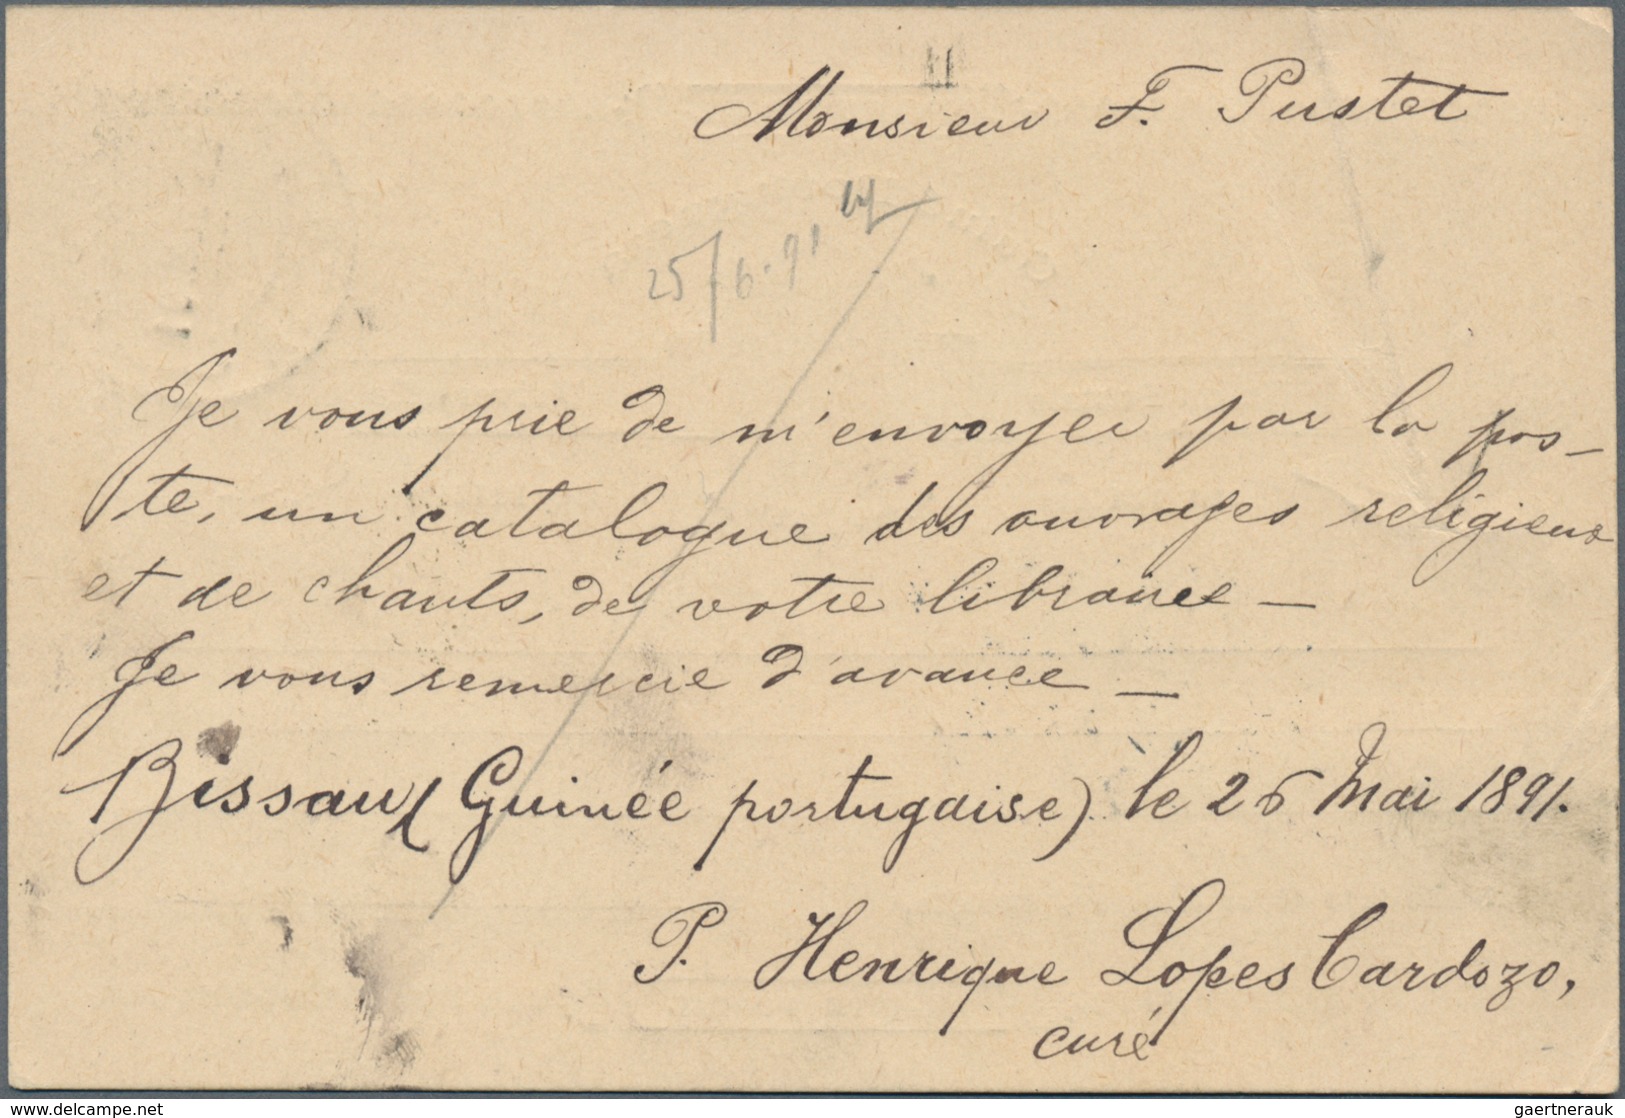 Monsieur F. Pustet
25/6.91
Je vous prie de m'envoyer par la pos-
te, un catalogue des ouvrages religieux
et de chants, de votre librairie –
Je vous remercie d'avance –
Bissau (Guinée portugaise) le 26 Mai 1891.
P. Henrique Lopes Cardozo,
curé
www.delcampe.net
gaertnerauk